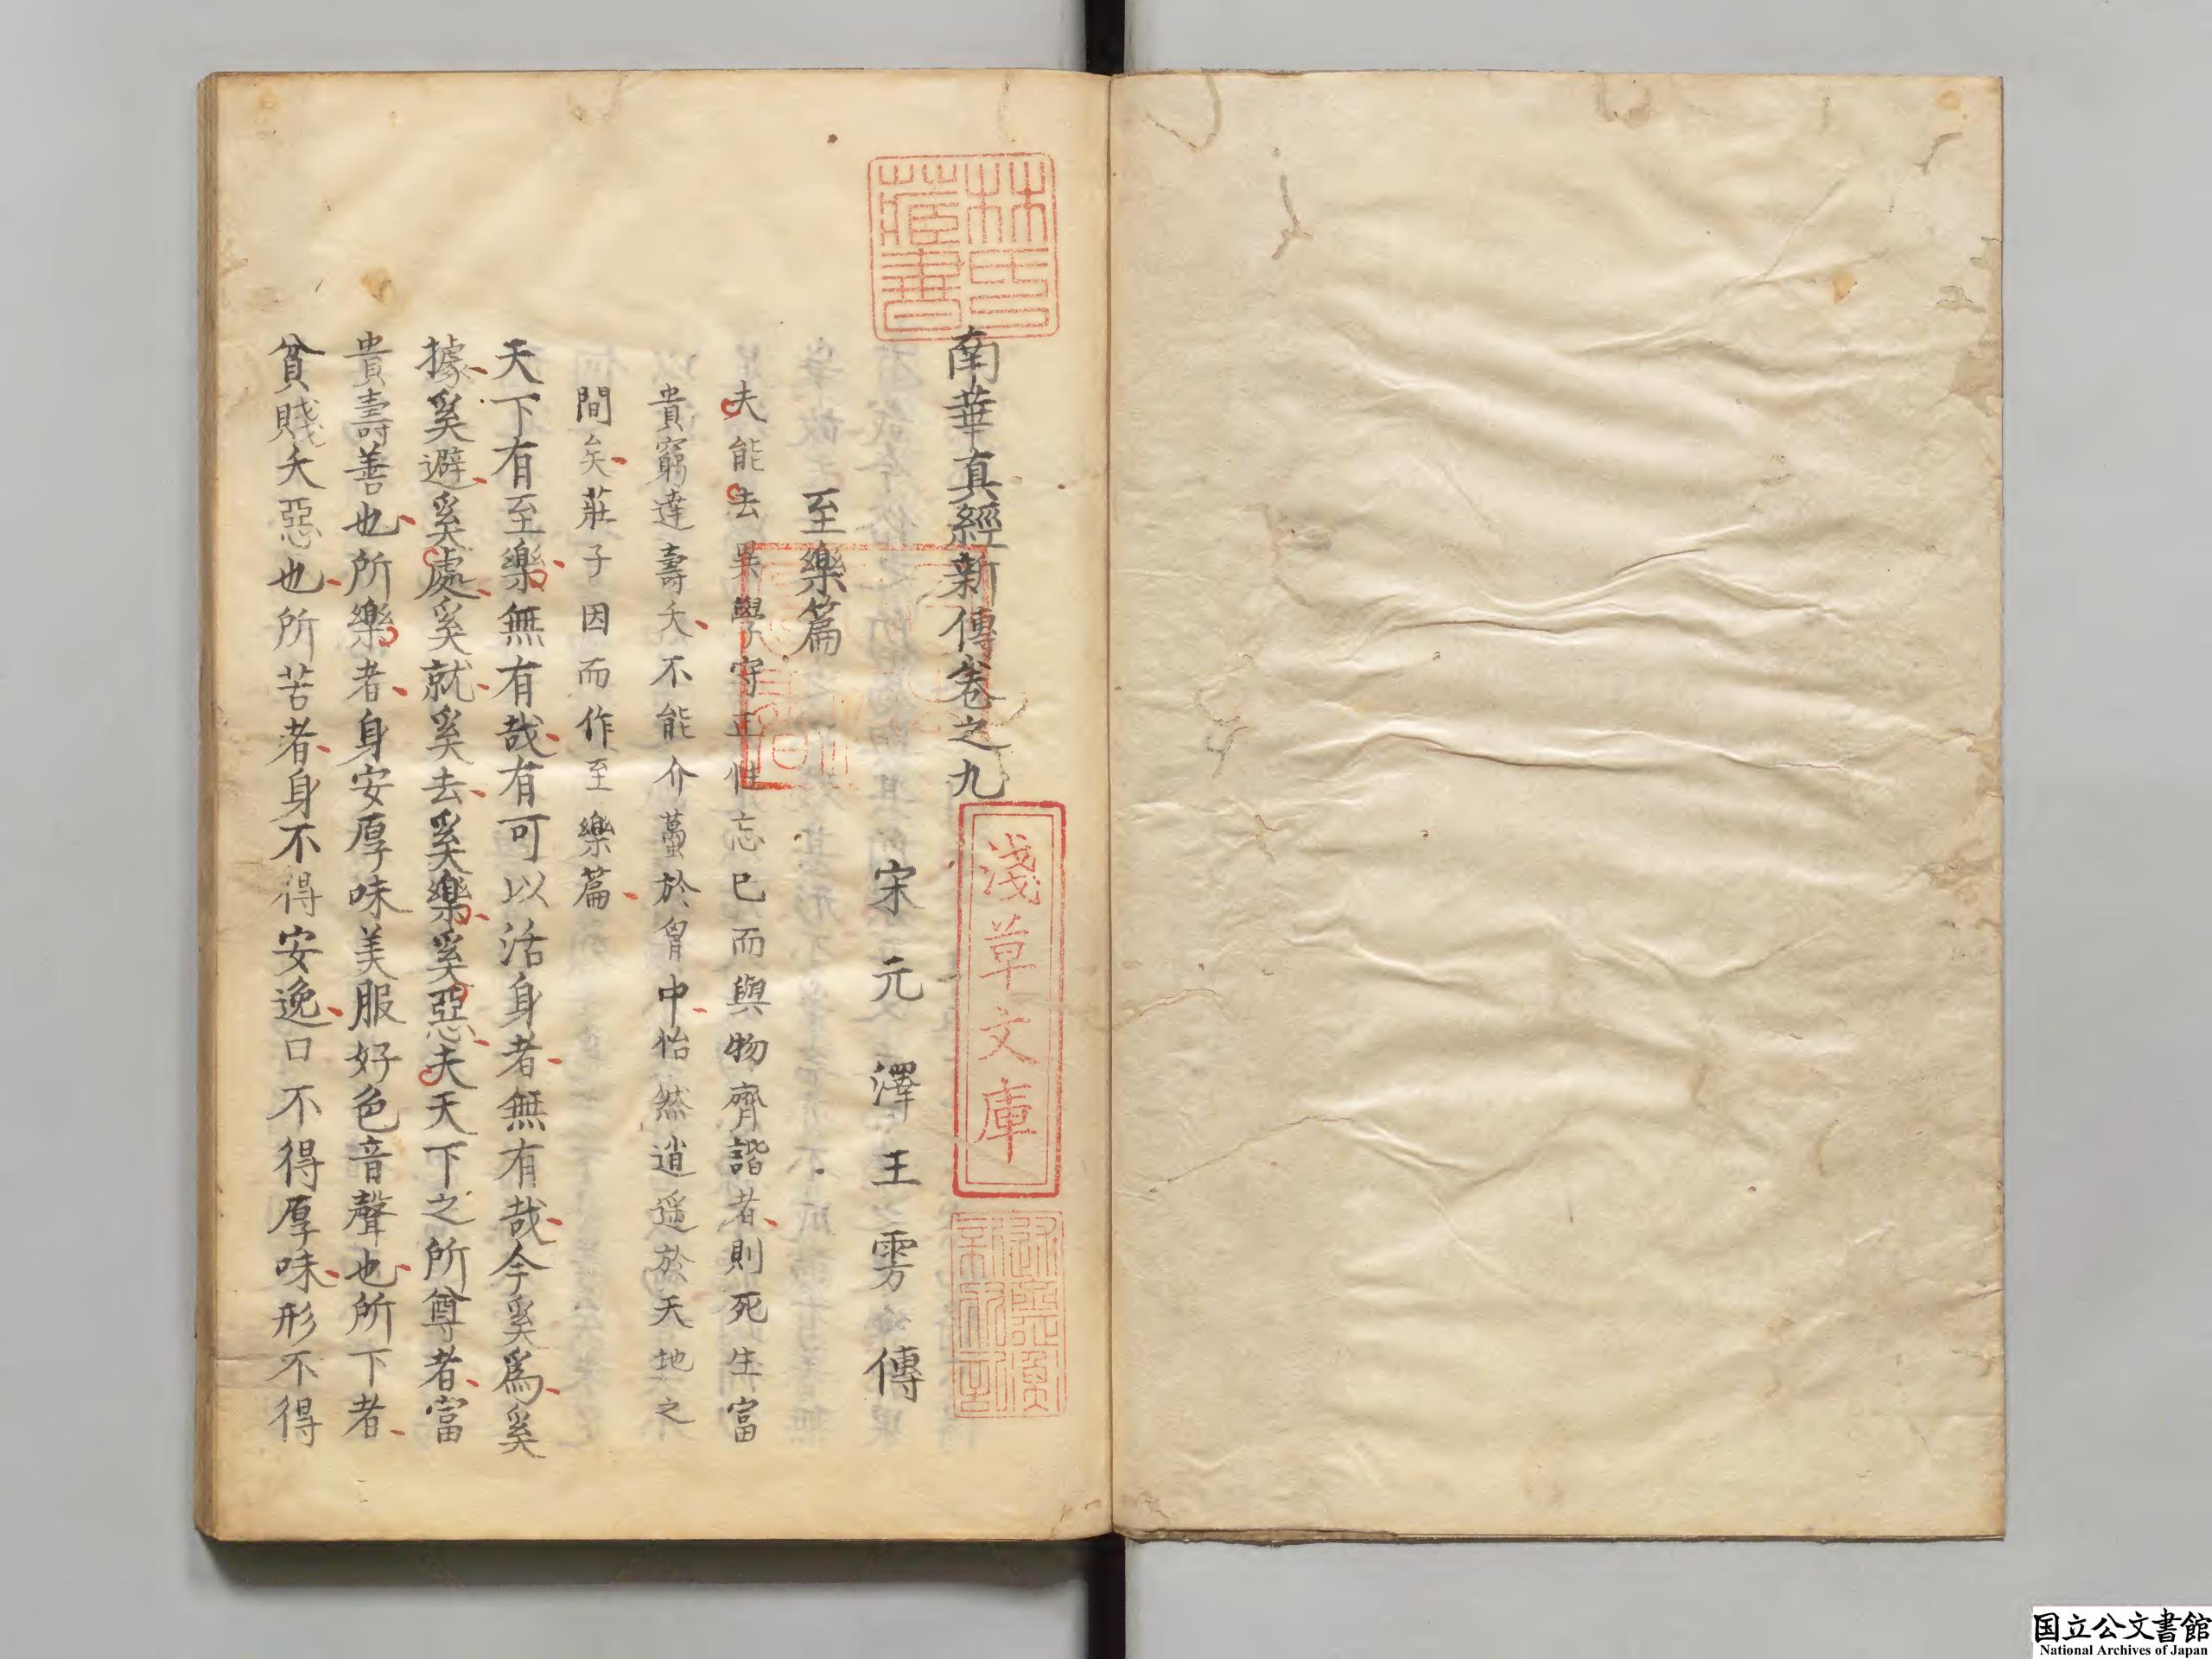 南華真經新傳卷之九
宋元澤王雱傳
至樂篇
夫能去異學守正性忘己而與物齊諧者則死生富
貴窮達壽夭不能介蠆於胷中怡然逍遥於天地之
間矣莊子因而作至樂篇
天下有至樂無有哉有可以活身者無有哉今奚爲奚
據奚避奚處奚就奚去奚樂奚惡夫天下之所尊者富
貴壽善也所樂者身安厚味美服好色音聲也所下者
貧賤夭惡也所苦者身不得安逸口不得厚味形不得
林氏藏書
淺草文庫
国立公文書館
National Archives of Japan